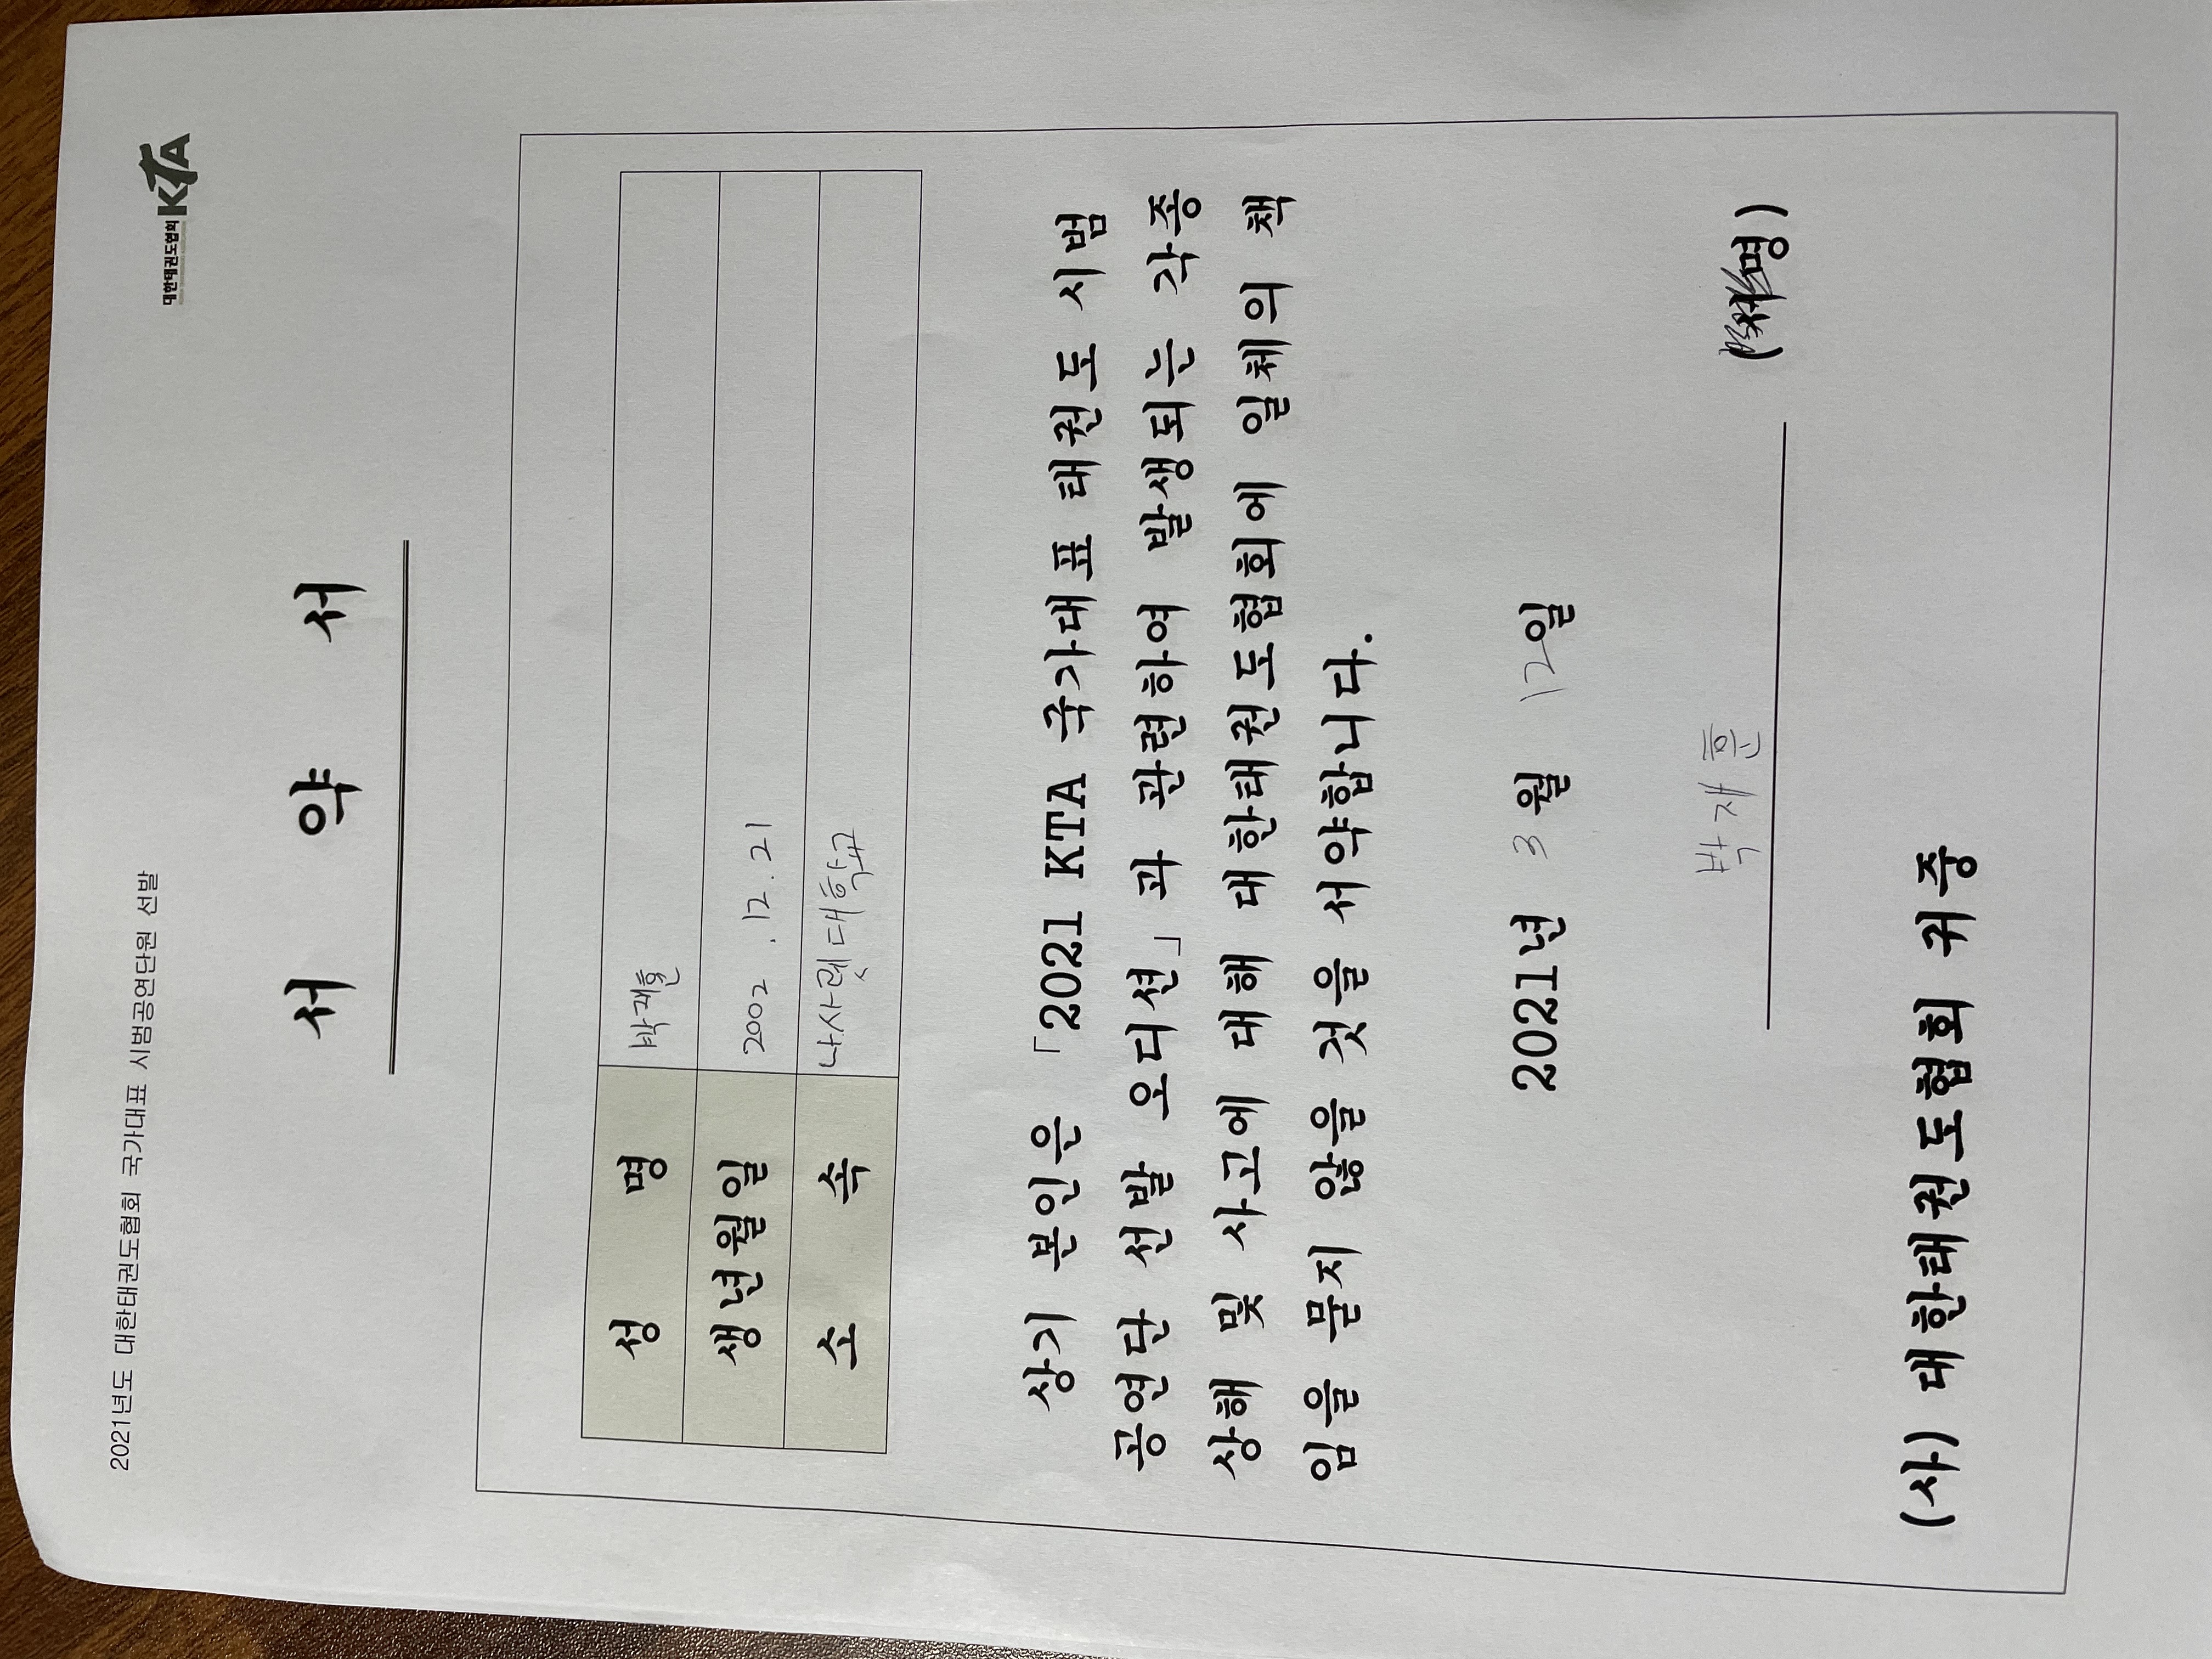 2021년도 대한태권도협회 국가대표 시범공연단원 선발
대한태권도협회 KTA
서 약 서
성 명 박재훈
생년월일 2002.12.21
소 속 나사렛대학교
상기 본인은 「2021 KTA 국가대표 태권도 시범
공연단 선발 오디션」과 관련하여 발생되는 각종
상해 및 사고에 대해 대한태권도협회에 일체의 책
임을 묻지 않을 것을 서약합니다.
2021년 3월 12일
박재훈 (서명)
(사) 대한태권도협회 귀중